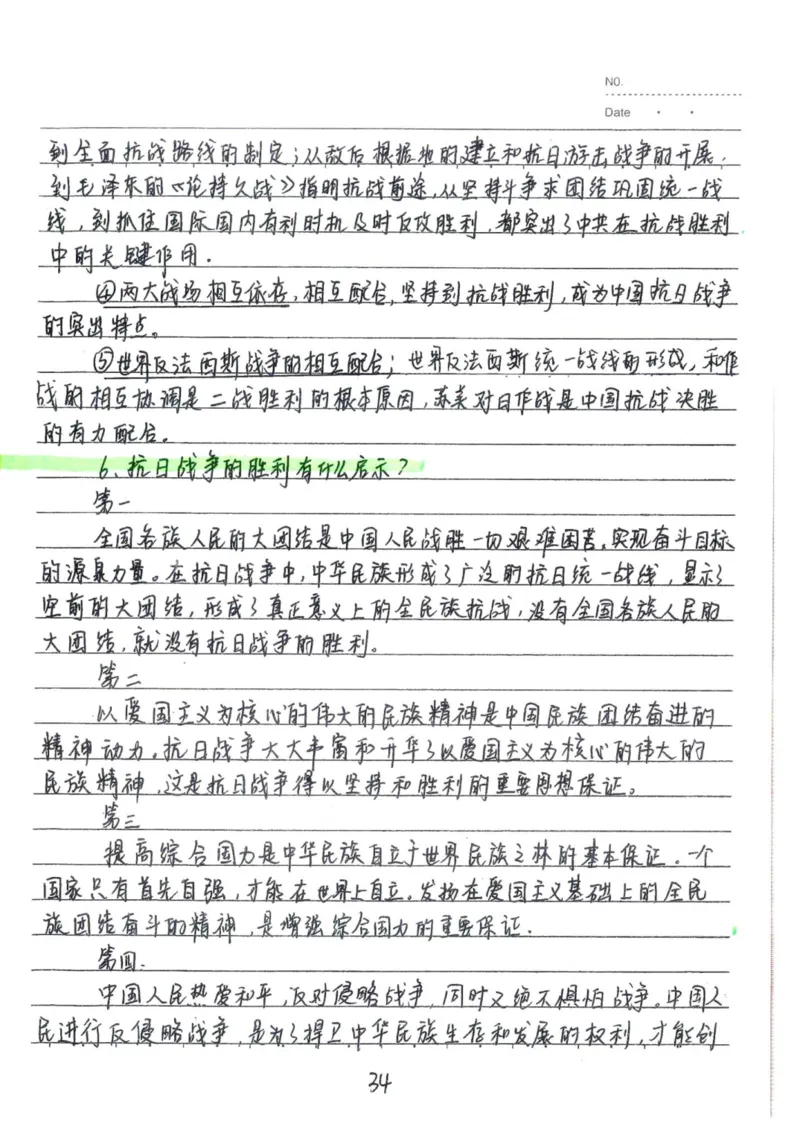 NO.
Date
到全面抗战路线的制定；从敌后根据地的建立和抗日游击战争的开展，
到毛泽东的《论持久战》指明抗战前途，从坚持斗争求团结巩固统一战
线，到抓住国际国内有利时机及时反攻胜利，都突出了中共在抗战胜利
中的关键作用．
④两大战场相互依存，相互配合，坚持到抗战胜利，成为中国抗日战争
的突出特点。
⑤世界反法西斯战争的相互配合；世界反法西斯统一战线的形成，和作
战的相互协调是二战胜利的根本原因，苏美对日作战是中国抗战决胜
的有力配合。
6、抗日战争的胜利有什么启示？
第一
全国各族人民的大团结是中国人民战胜一切艰难困苦，实现奋斗目标
的源泉力量。在抗日战争中，中华民族形成了广泛的抗日统一战线，显示了
空前的大团结，形成了真正意义上的全民族抗战，没有全国各族人民的
大团结，就没有抗日战争的胜利。
第二
以爱国主义为核心的伟大的民族精神是中国民族团结奋进的
精神动力。抗日战争大大丰富和升华了以爱国主义为核心的伟大的
民族精神，这是抗日战争得以坚持和胜利的重要思想保证。
第三
提高综合国力是中华民族自立于世界民族之林的基本保证．一个
国家只有首先自强，才能在世界上自立。发扬在爱国主义基础上的全民
族团结奋斗的精神，是增强综合国力的重要保证．
第四．
中国人民热爱和平，反对侵略战争，同时又绝不惧怕战争。中国人
民进行反侵略战争，是为了捍卫中华民族生存和发展的权利，才能创
34